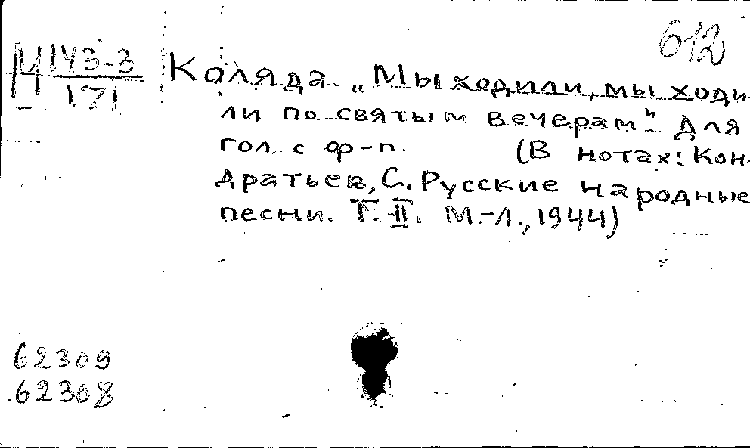 612
М 143-3
171
Коляда „Мы ходили, мы ходи
ли по святым вечерам". Для
гол. с ф-п. (В нотах: Кон
дратьев, С. Русские народные
песни. Т. II. М.-Л., 1944)
62309
62308